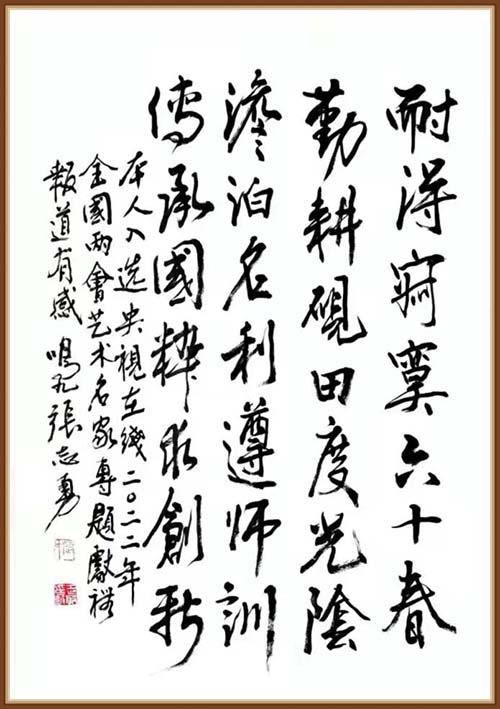 耐得寂寞六十春
勤耕硯田度光陰
澹泊名利遵师訓
傳承國粹求創新
本人入选央視在綫二〇二二年
全國两會艺术名家專題獻
報道有感 張志勇